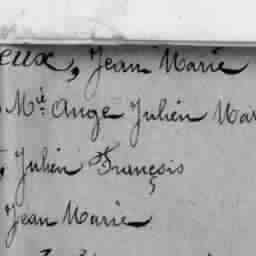 eux, Jean Marie
Mie Ange Julien Mar
Julien François
Jean Marie